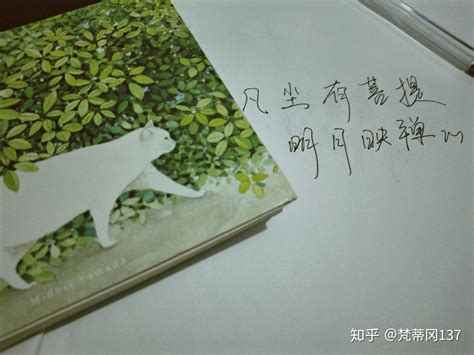 凡尘有菩提
明月映禅心
Midori Yamada
知乎 @梵蒂冈137